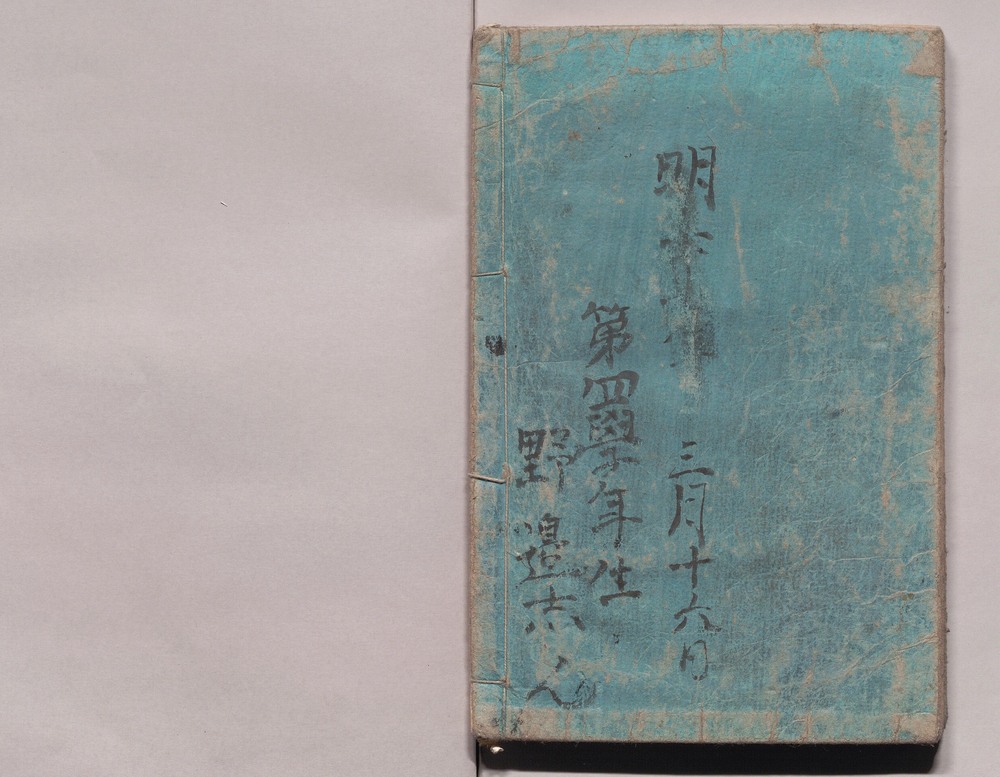 明 年 三月十六日
第四學年生
野邉志ん